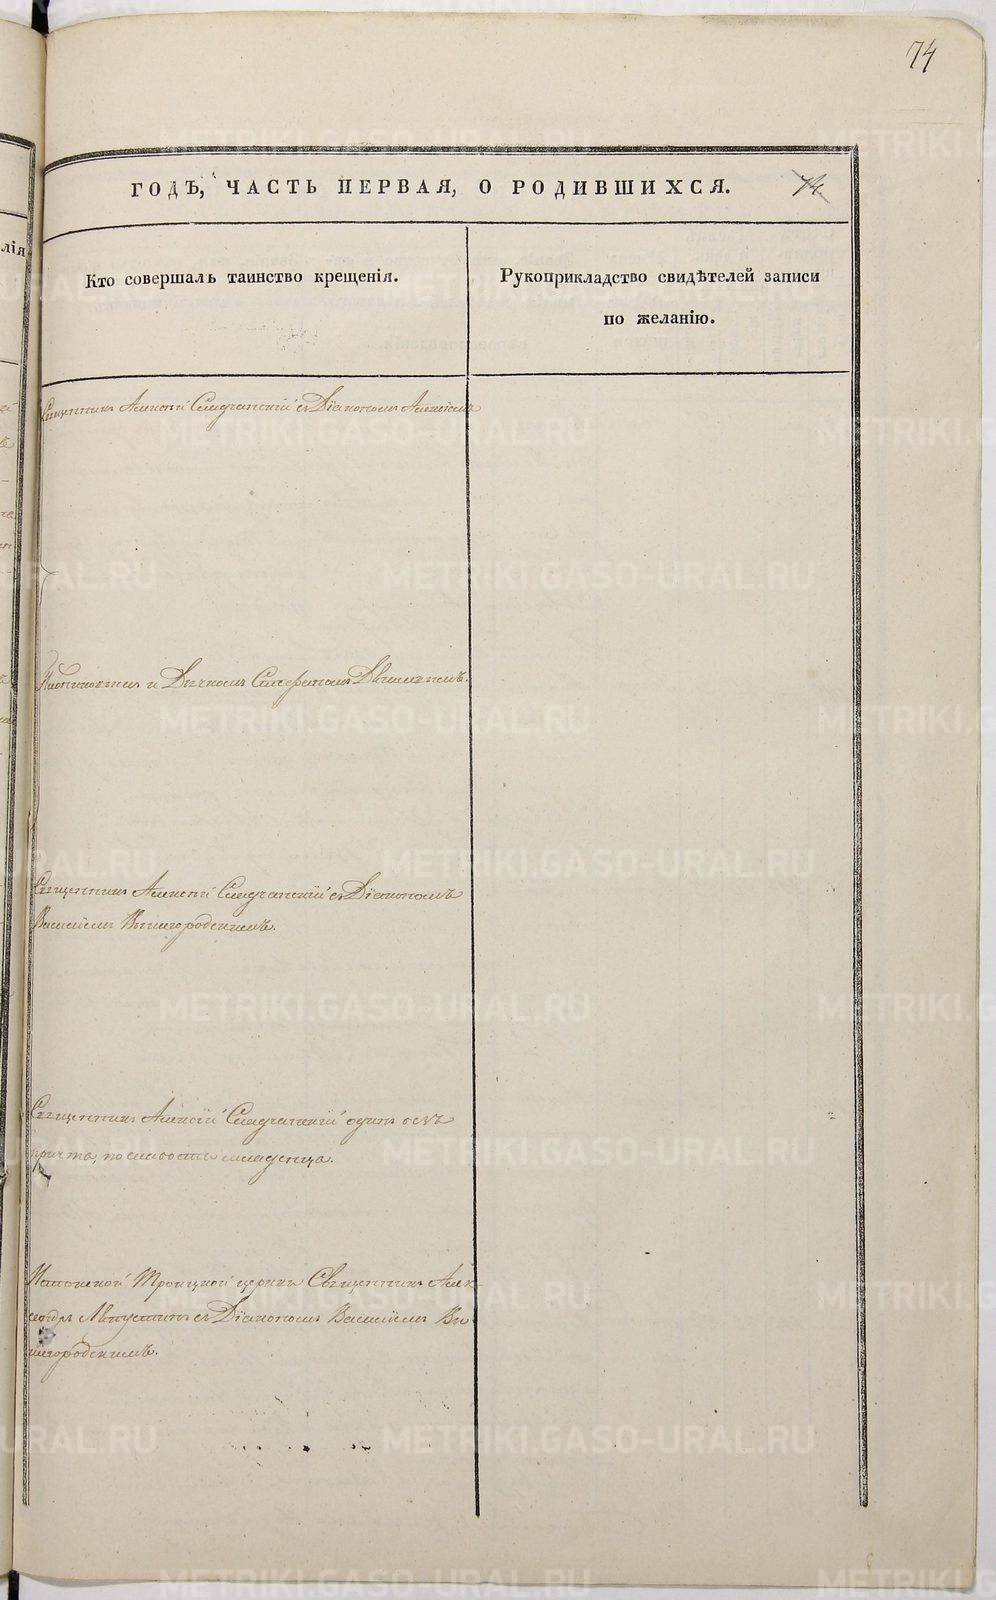 74
ГОДЪ, ЧАСТЬ ПЕРВАЯ, О РОДИВШИХСЯ. 74
лія
Кто совершалъ таинство крещенія.
Рукоприкладство свидѣтелей записи
по желанію.
Священникъ Алексѣй Смарчанскій съ Діакономъ
и Дьячкомъ Стефаномъ
Священникъ Алексѣй съ Діакономъ
Василіемъ Вышегородскимъ.
Священникъ Алексѣй одинъ безъ
причта, по слабости младенца.
Троицкой церкви Священникъ Алек-
сандръ съ Діакономъ Василіемъ Вы-
шегородскимъ.
METRIKI.GASO-URAL.RU